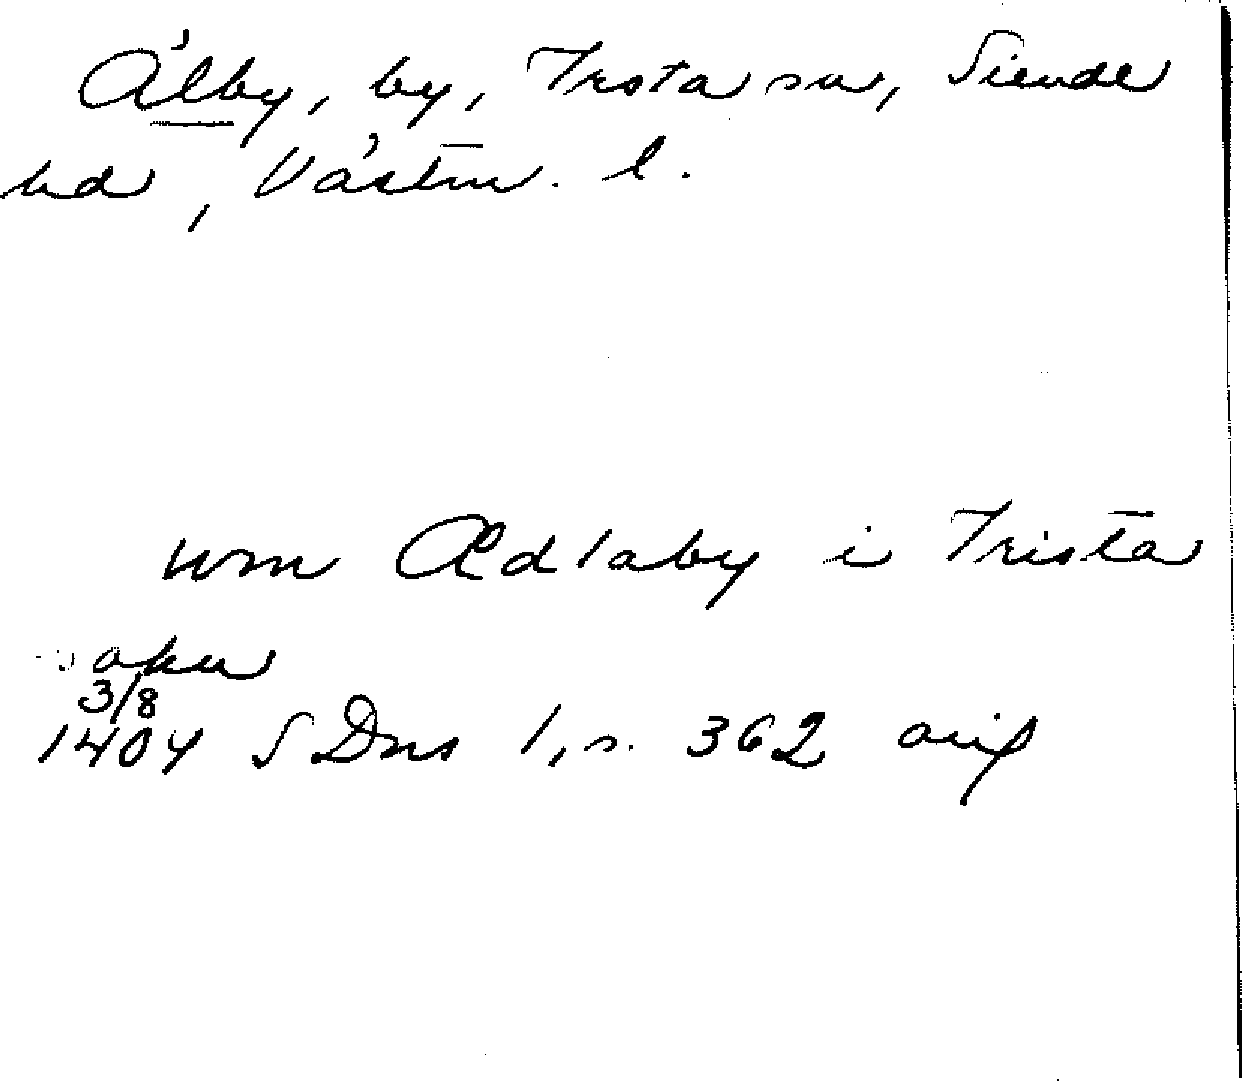 Älby, by, Irsta sn, Siende
hd, Västm. l.
wm Ædlaby i Irista
sokn
3/8
1404 SDns 1, s. 362 avsp